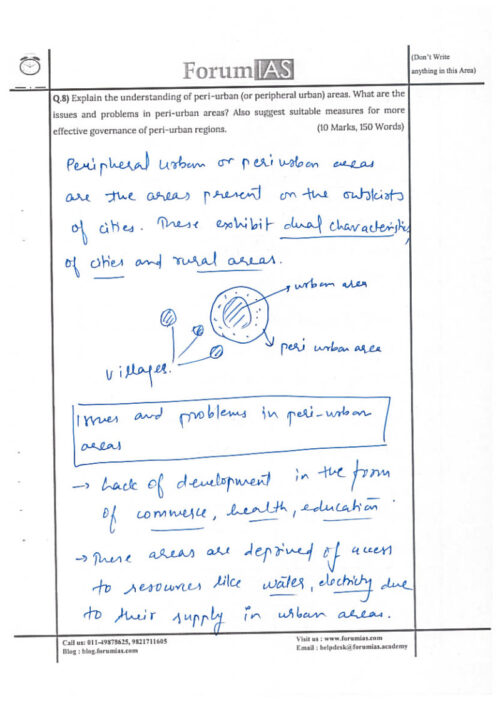 (Don't Write
anything in this Area)
ForumIAS
Q.8) Explain the understanding of peri-urban (or peripheral urban) areas. What are the
issues and problems in peri-urban areas? Also suggest suitable measures for more
effective governance of peri-urban regions. (10 Marks, 150 Words)
Peripheral urban or peri urban areas
are the areas present on the outskirts
of cities. These exhibit dual characteristics
of cities and rural areas.
urban area
peri urban area
villages.
Issues and problems in peri-urban
areas
→ Lack of development in the form
of commerce, health, education.
→ These areas are deprived of access
to resources like water, electricity due
to their supply in urban areas.
Call us: 011-49878625, 9821711605
Blog : blog.forumias.com
Visit us : www.forumias.com
Email : helpdesk@forumias.academy